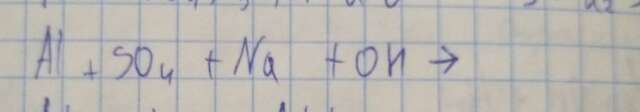 Al + SO₄ + Na + OH →